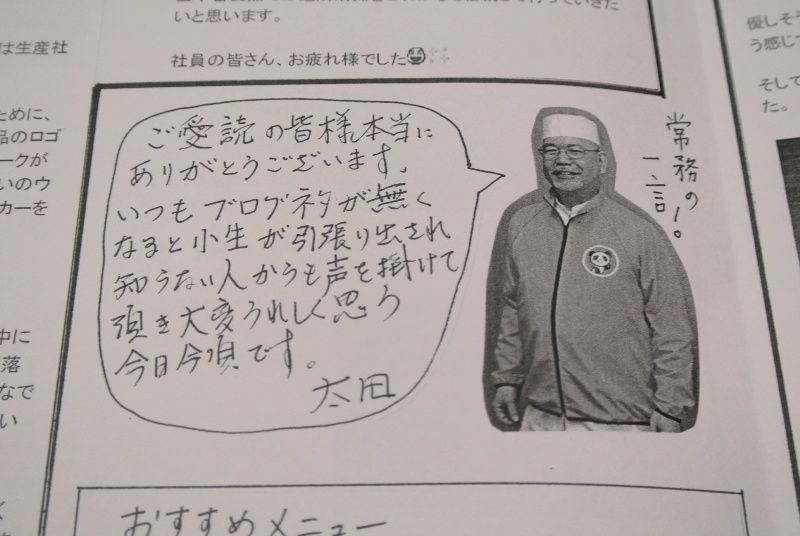 たいと思います。
社員の皆さん、お疲れ様でした
は生産社
ために、
品のロゴ
ークが
いのウ
カーを
中に
落
なで
い
ご愛読の皆様本当に
ありがとうございます。
いつもブログネタが無く
なると小生が引張り出され
知らない人からも声を掛けて
頂き大変うれしく思う
今日今頃です。
太田
常務の
一言。
優しそ
う感じ
そして
た。
おすすめメニュー